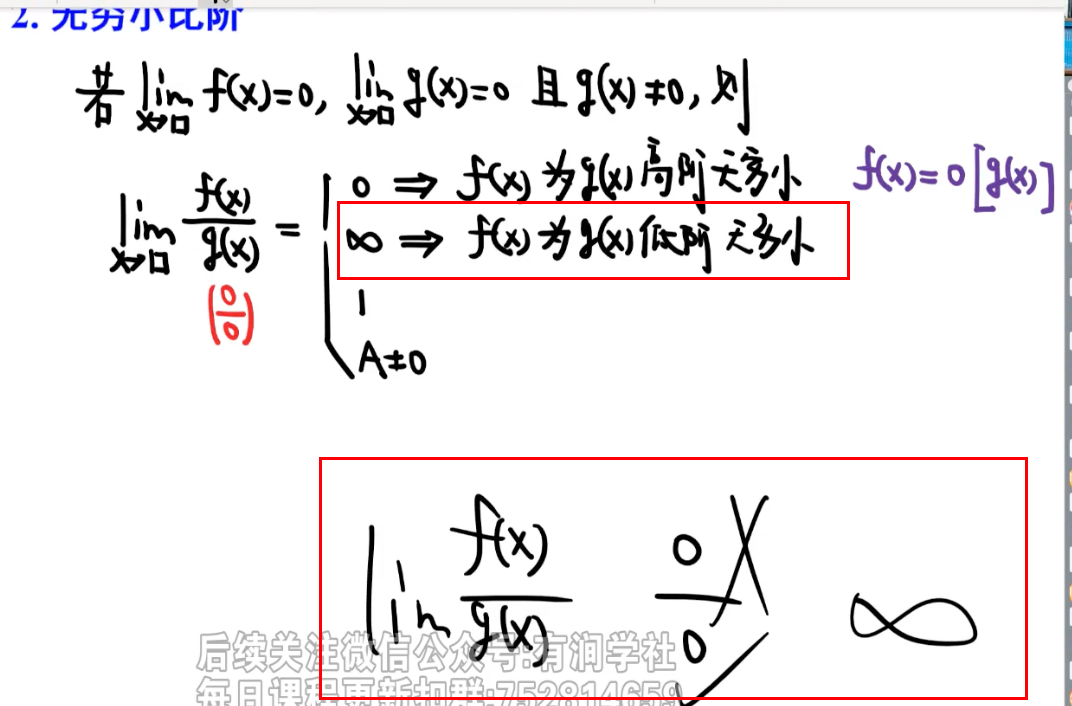 2. 无穷小比阶
若 lim x→□ f(x)=0, lim x→□ g(x)=0 且 g(x)≠0, 则
lim x→□ f(x)/g(x) = { 0 ⇒ f(x) 为 g(x) 高阶无穷小 f(x)=0[g(x)]
∞ ⇒ f(x) 为 g(x) 低阶无穷小
(0/0)
1
A≠0
lim f(x)/g(x) 0/0 ∞
后续关注微信公众号:有润学社
每日课程更新扣群:752814659